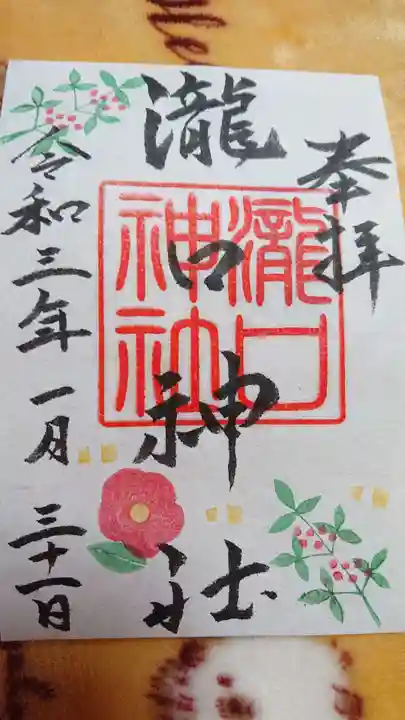 奉拝
瀧口神社
瀧口
神社
令和三年一月三十一日